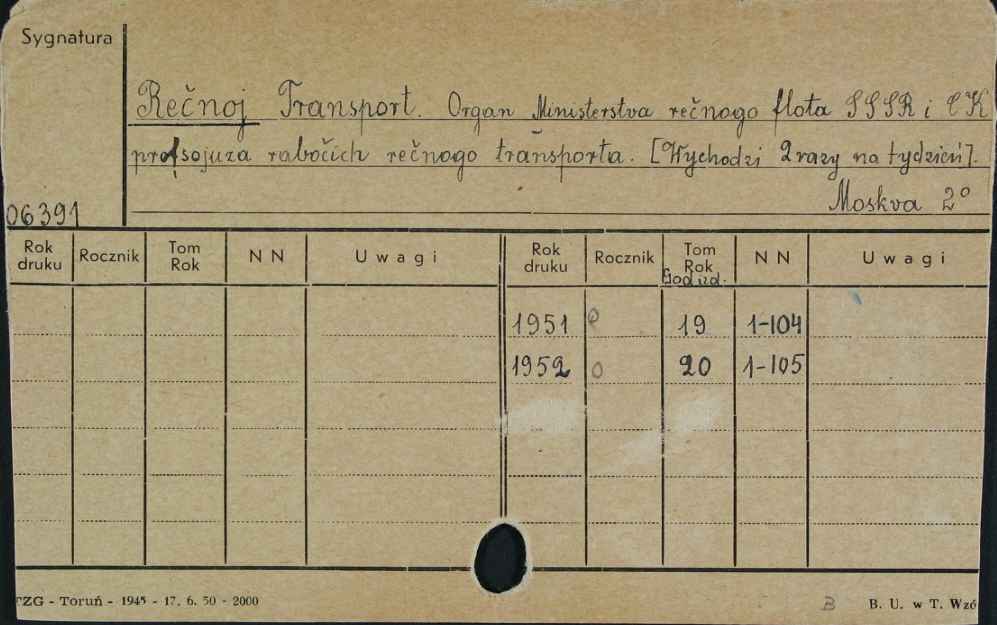 Sygnatura
Rečnoj Transport. Organ Ministerstva rečnogo flota SSSR i CK
profsojuza rabočich rečnogo transporta. [Wychodzi 2 razy na tydzień].
Moskva 2°
06391
Rok druku Rocznik Tom Rok N N Uwagi Rok druku Rocznik Tom Rok God izd. N N Uwagi
1951 0 19 1-104
1952 0 20 1-105
TZG - Toruń - 1945 - 17. 6. 50 - 2000 B B. U. w T. Wzó